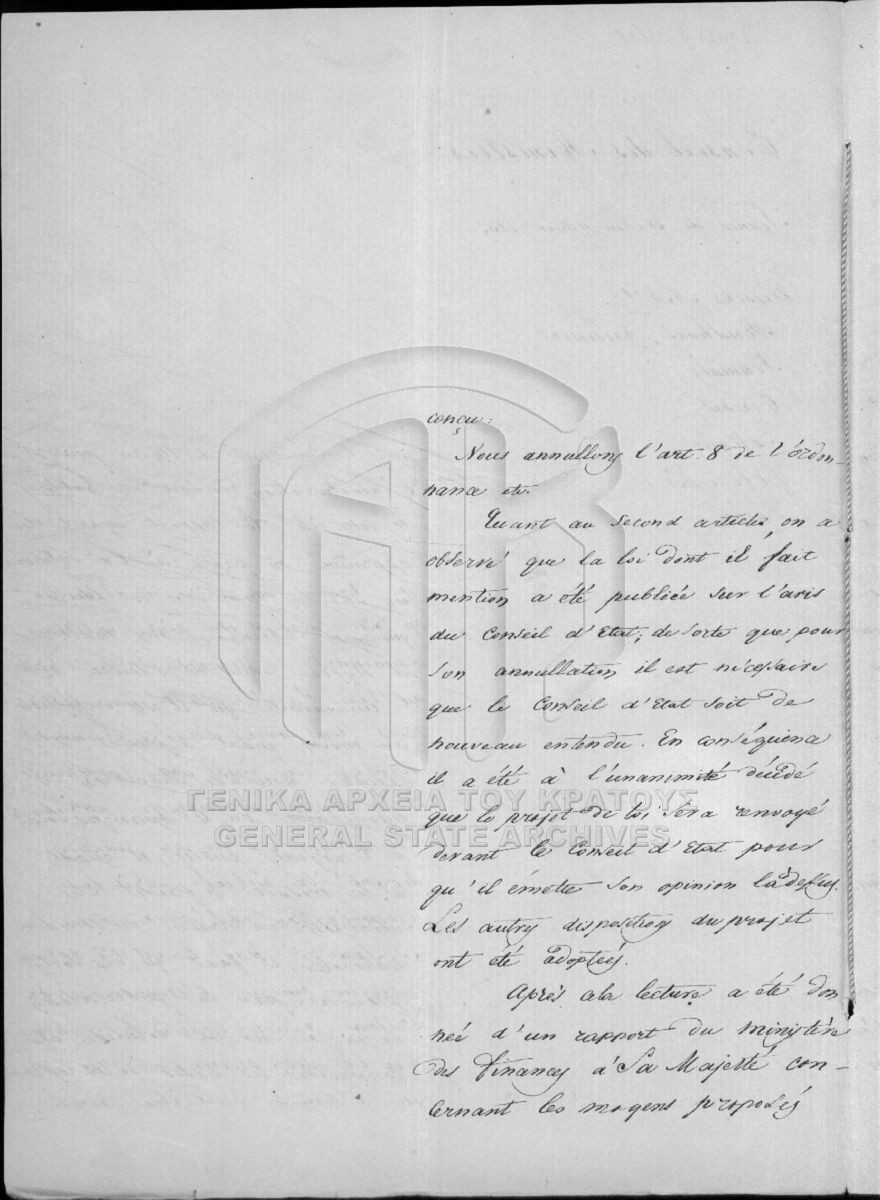 conçu:
Nous annullons l'art. 8 de l'ordon-
nance etc.
Quant au second article, on a
observé que la loi dont il fait
mention a été publiée sur l'avis
du Conseil d'Etat; de sorte que pour
son annullation il est nécessaire
que le Conseil d'Etat soit de
nouveau entendu. En conséquence
il a été à l'unanimité décidé
que le projet de loi sera renvoyé
devant le Conseil d'Etat pour
qu'il émette son opinion là dessus.
Les autres disposition du projet
ont été adoptées.
Après cela lecture a été don
neé d'un rapport du ministère
des Finances à Sa Majesté con-
cernant les moyens proposés
ΓΕΝΙΚΑ ΑΡΧΕΙΑ ΤΟΥ ΚΡΑΤΟΥΣ
GENERAL STATE ARCHIVES